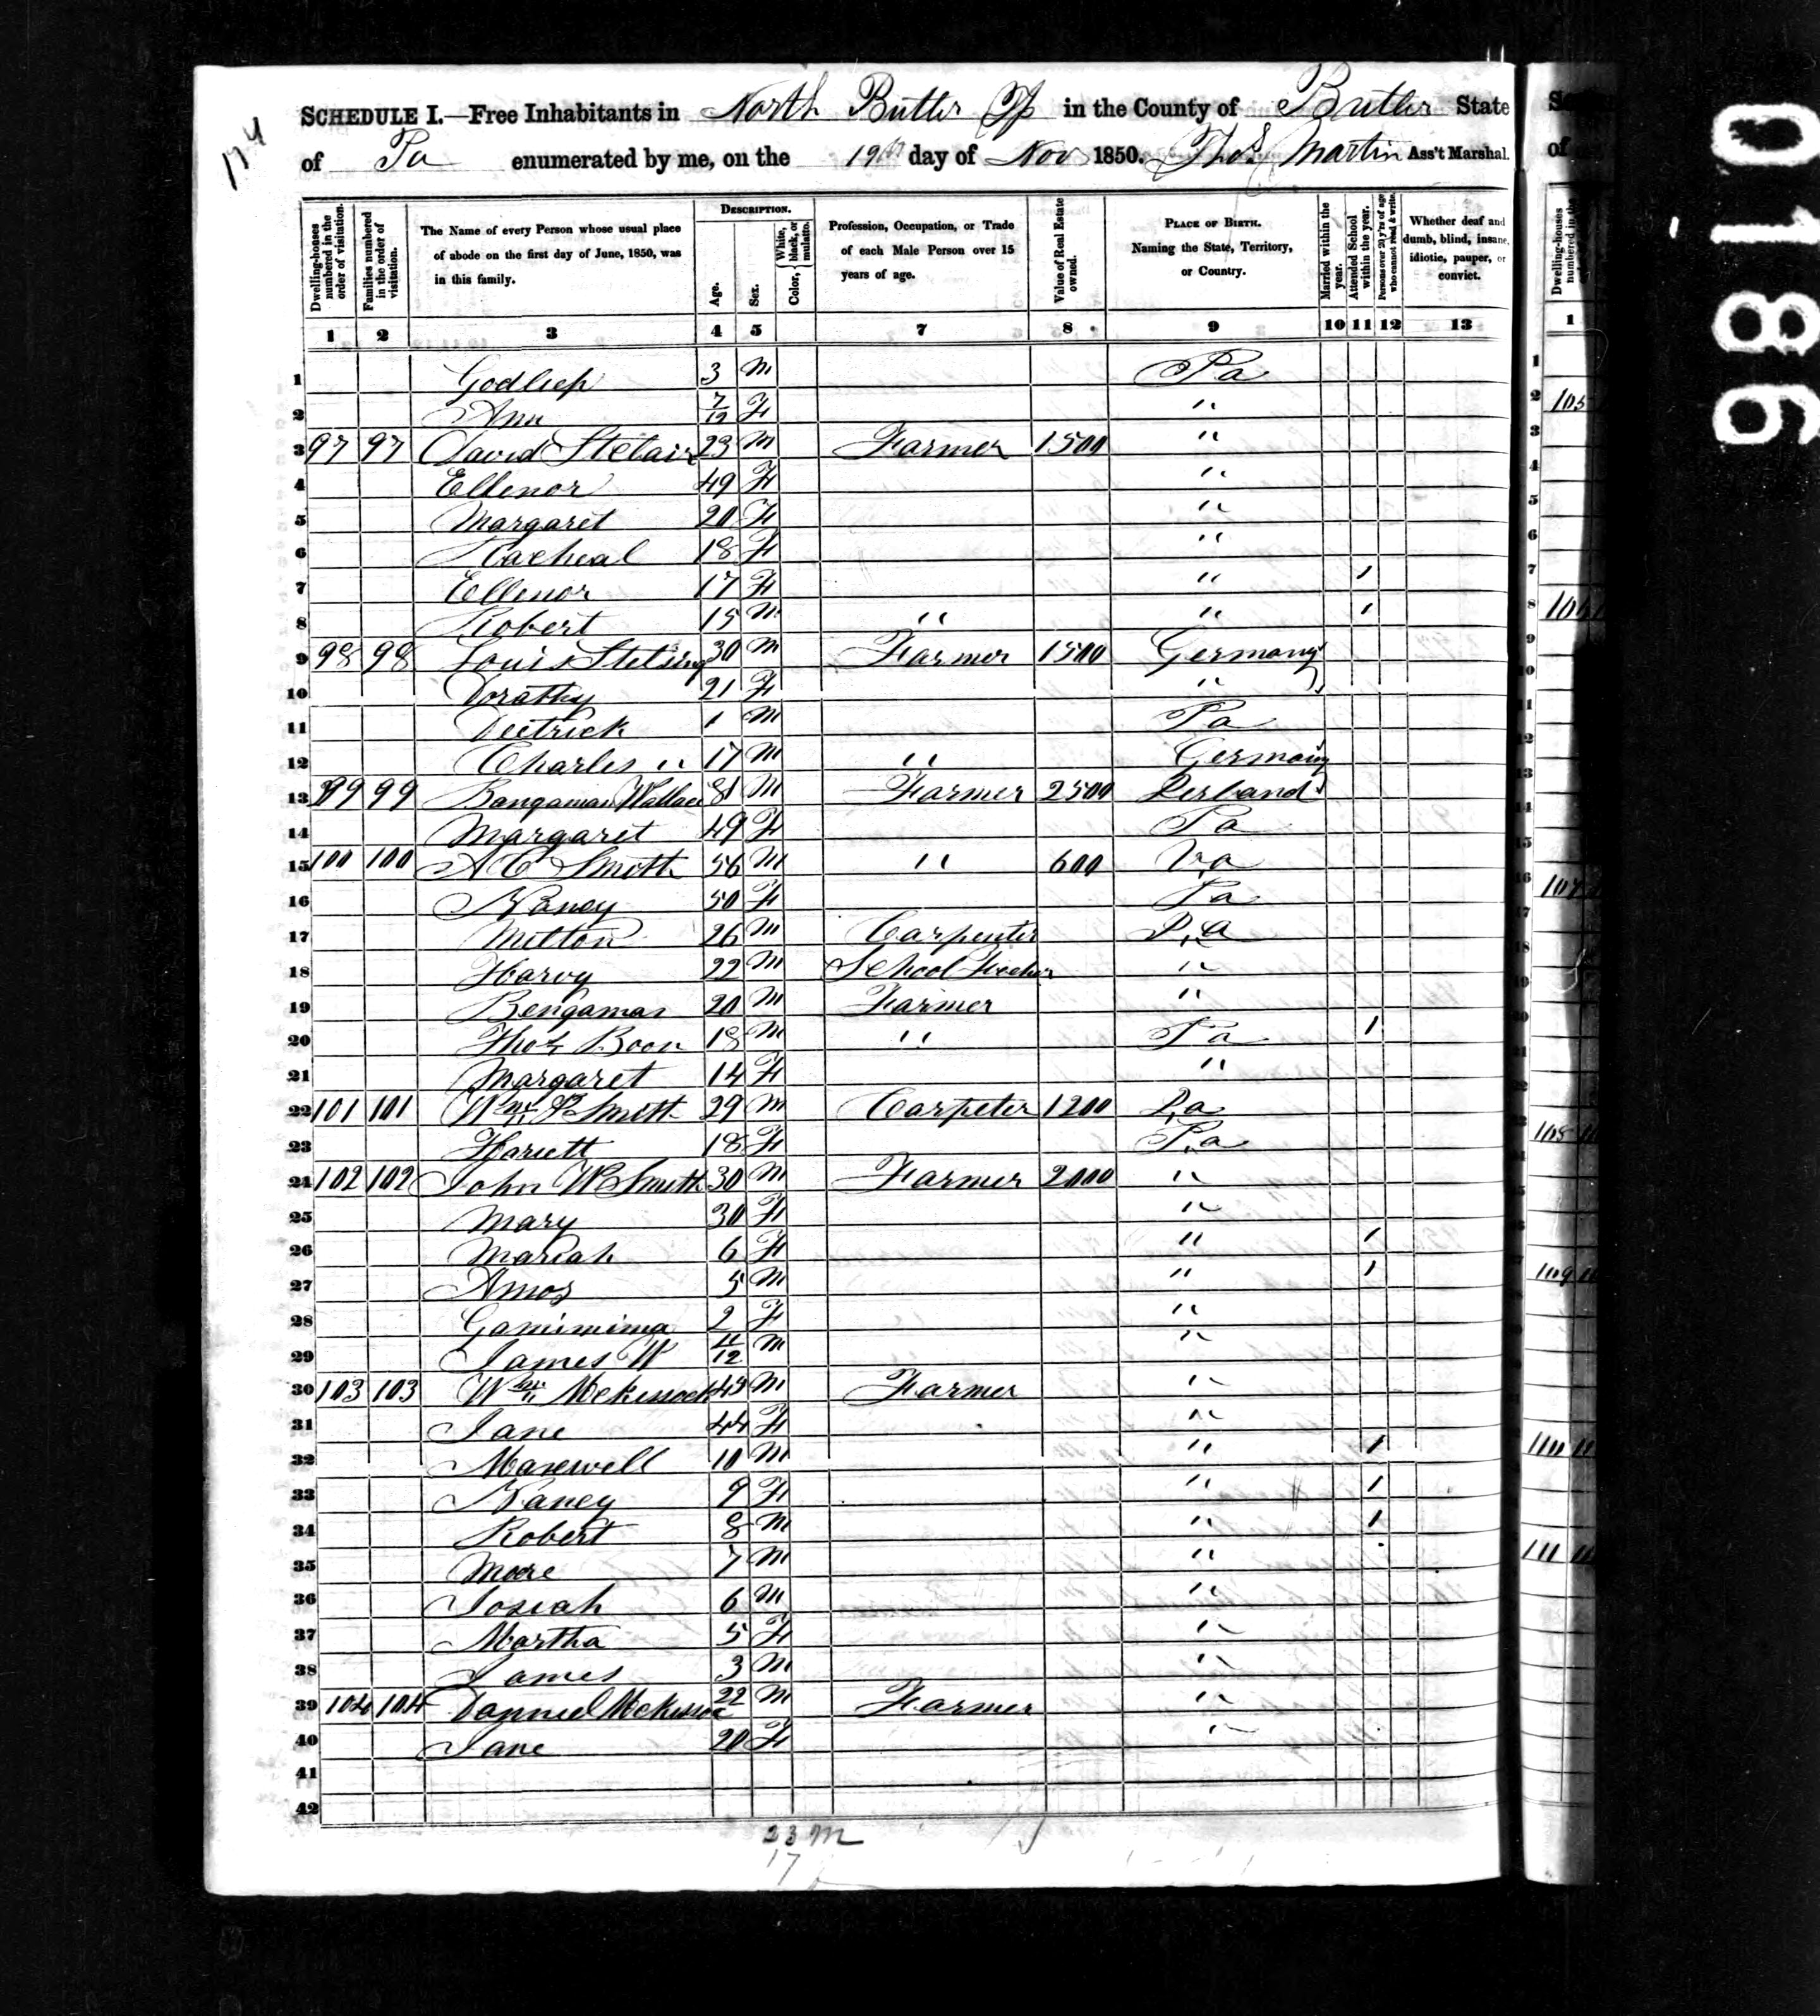 174
SCHEDULE I.—Free Inhabitants in North Butler Tp in the County of Butler State
of Pa enumerated by me, on the 19th day of Nov 1850. Thos Martin Ass't Marshal.
Dwelling-houses numbered in the order of visitation.
Families numbered in the order of visitation.
The Name of every Person whose usual place of abode on the first day of June, 1850, was in this family.
DESCRIPTION.
Age.
Sex.
Color, { White, black, or mulatto.
Profession, Occupation, or Trade of each Male Person over 15 years of age.
Value of Real Estate owned.
PLACE OF BIRTH. Naming the State, Territory, or Country.
Married within the year.
Attended School within the year.
Persons over 20 y'rs of age who cannot read & write.
Whether deaf and dumb, blind, insane, idiotic, pauper, or convict.
1 2 3 4 5 7 8 9 10 11 12 13
1 Godliep 3 M Pa
2 Ann 7/12 F "
3 97 97 David Stclair 23 M Farmer 1500 "
4 Ellenor 49 F "
5 Margaret 20 F "
6 Racheal 18 F "
7 Ellenor 17 F " 1
8 Robert 15 M " " 1
9 98 98 Louis Stelsing 30 M Farmer 1500 Germany
10 Dorathy 21 F "
11 Deitrick 1 M Pa
12 Charles " 17 M " Germany
13 99 99 Bangaman Wallace 81 M Farmer 2500 Ierland
14 Margaret 49 F Pa
15 100 100 A C Smith 56 M " 600 Va
16 Nancy 50 F Pa
17 Milton 26 M Carpenter Pa
18 Harvy 22 M School Teacher "
19 Bengaman 20 M Farmer "
20 Thos Boon 18 M " Pa 1
21 Margaret 14 F "
22 101 101 Wm P Smith 29 M Carpeter 1200 Pa
23 Hariett 18 F Pa
24 102 102 John W Smith 30 M Farmer 2000 "
25 Mary 30 F "
26 Mariah 6 F " 1
27 Amos 5 M " 1
28 Gamimima 2 F "
29 James W 11/12 M "
30 103 103 Wm Mckissock 45 M Farmer "
31 Jane 44 F "
32 Maxwell 10 M " 1
33 Nancy 9 F " 1
34 Robert 8 M " 1
35 Moore 7 M "
36 Josiah 6 M "
37 Martha 5 F "
38 James 3 M "
39 104 104 Danniel Mckissoc 22 M Farmer "
40 Jane 20 F "
41
42
23 M
17
0186